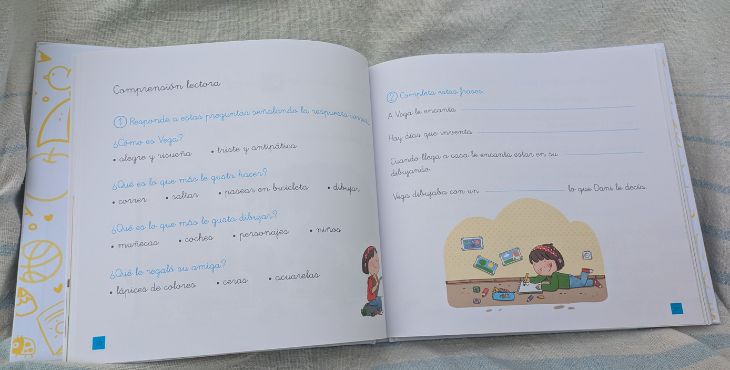 Comprensión lectora
1 Responde a estas preguntas señalando la respuesta correcta
¿Cómo es Vega?
• alegre y risueña • triste y antipática
¿Qué es lo que más le gusta hacer?
• correr • saltar • pasear en bicicleta • dibujar
¿Qué es lo que más le gusta dibujar?
• muñecas • coches • personajes • niños
¿Qué le regaló su amiga?
• lápices de colores • ceras • acuarelas
2 Completa estas frases
A Vega le encanta
Hay días que inventa
Cuando llega a casa le encanta estar en su
dibujando.
Vega dibujaba con un lo que Dani le decía.